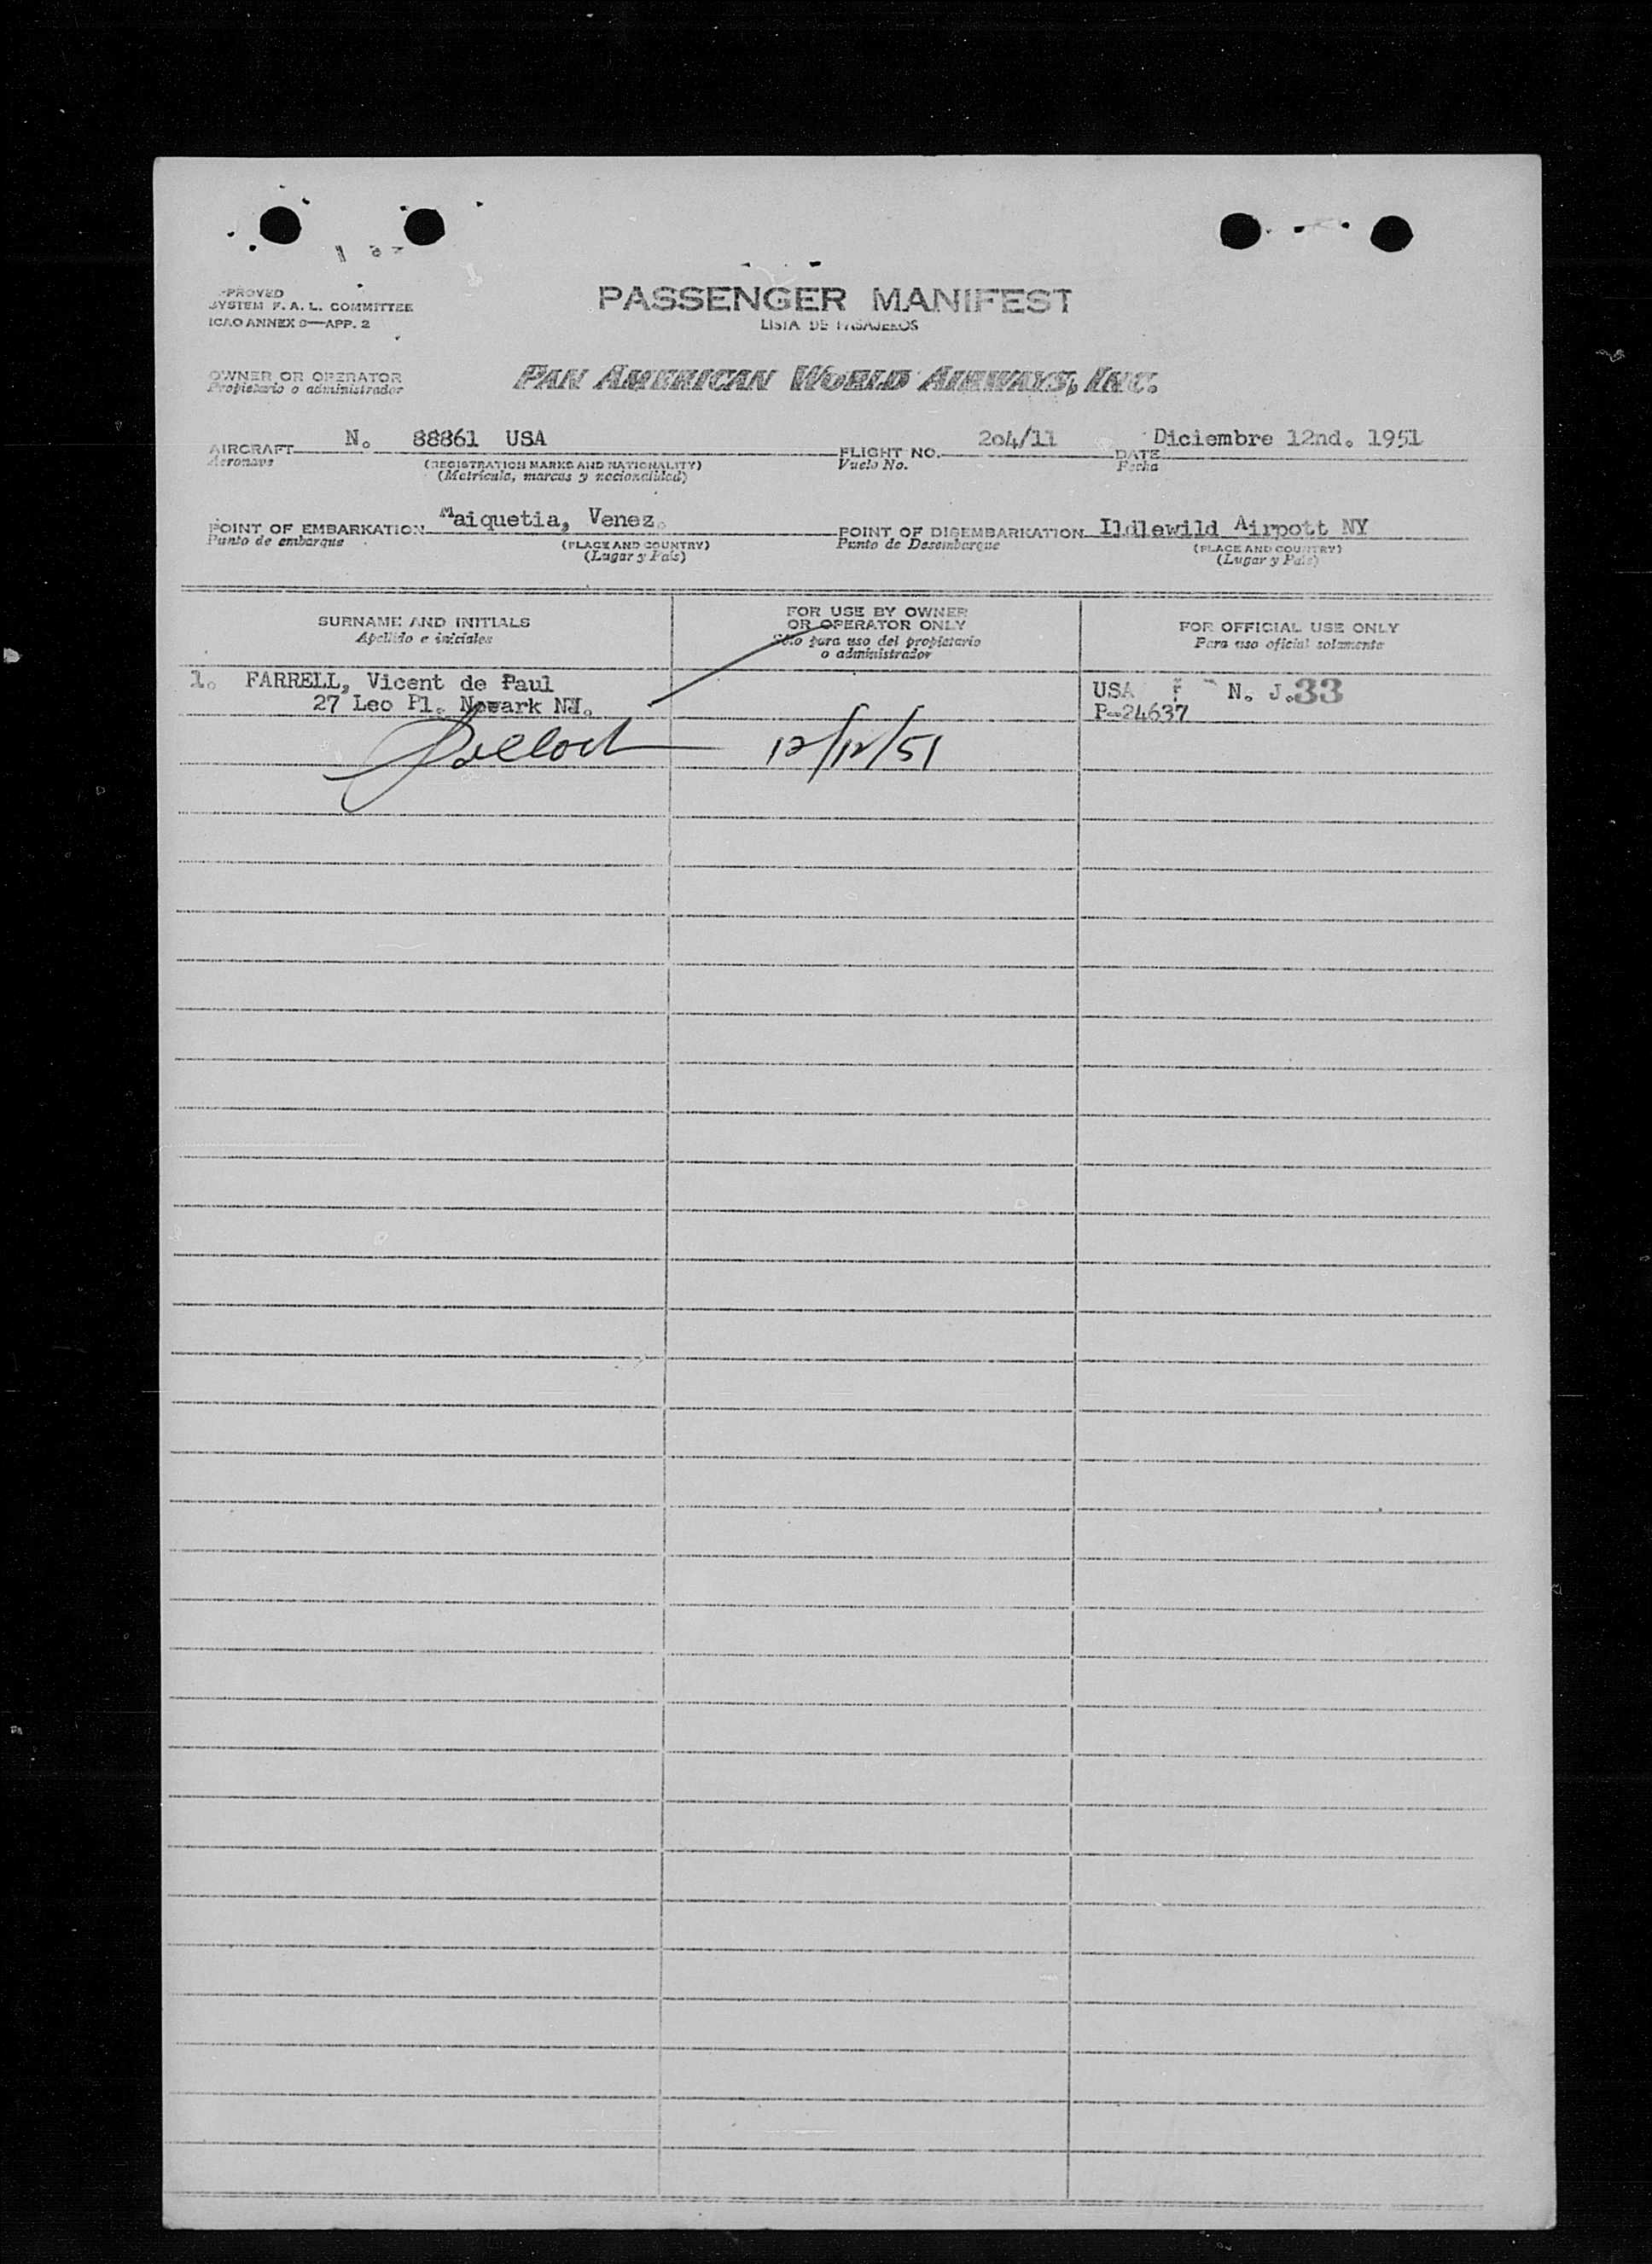 PPROVED
SYSTEM F. A. L. COMMITTEE
ICAO ANNEX 9—APP. 2
PASSENGER MANIFEST
LISTA DE PASAJEROS
OWNER OR OPERATOR
Propietario o administrador
PAN AMERICAN WORLD AIRWAYS, INC.
AIRCRAFT N. 88861 USA FLIGHT NO. 204/11 DATE Diciembre 12nd. 1951
Aeronave (REGISTRATION MARKS AND NATIONALITY) Vuelo No. Fecha
(Matrícula, marcas y nacionalidad)
POINT OF EMBARKATION Maiquetia, Venez. POINT OF DISEMBARKATION Ildlewild Airpott NY
Punto de embarque (PLACE AND COUNTRY) Punto de Desembarque (PLACE AND COUNTRY)
(Lugar y País) (Lugar y País)
SURNAME AND INITIALS
Apellido e iniciales
FOR USE BY OWNER
OR OPERATOR ONLY
Sólo para uso del propietario
o administrador
FOR OFFICIAL USE ONLY
Para uso oficial solamente
1. FARRELL, Vicent de Paul USA F N. J. 33
27 Leo Pl. Newark NJ. P-24637
12/12/51